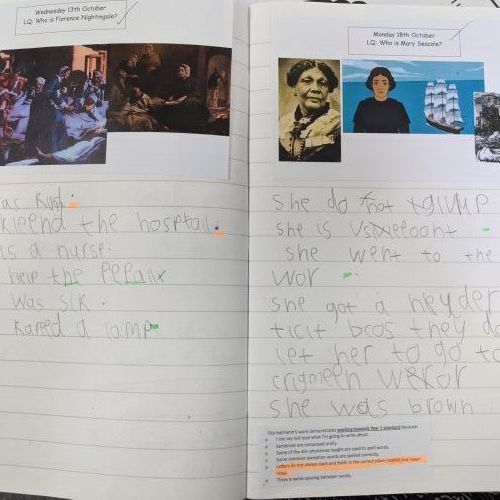 Wednesday 13th October
LQ: Who is Florence Nightingale?
as kinb.
kleend the hosptail.
is a nurse.
here the PePalx
Was sik.
kareed a lamp
Monday 18th October
LQ: Who is Mary Seacole?
She do not tgiup
she is
she went to the
wor
she got a
ticit bcos they
let her to go to
crigmeen
she was brown
This half-term's work demonstrates working towards Year 1 standard because:
I can say out loud what I'm going to write about.
Sentences are composed orally.
Some of the 40+ phonemes taught are used to spell words.
Some common exception words are spelled correctly.
Letters do not always start and finish in the correct place (capital and lower case).
There is some spacing between words.